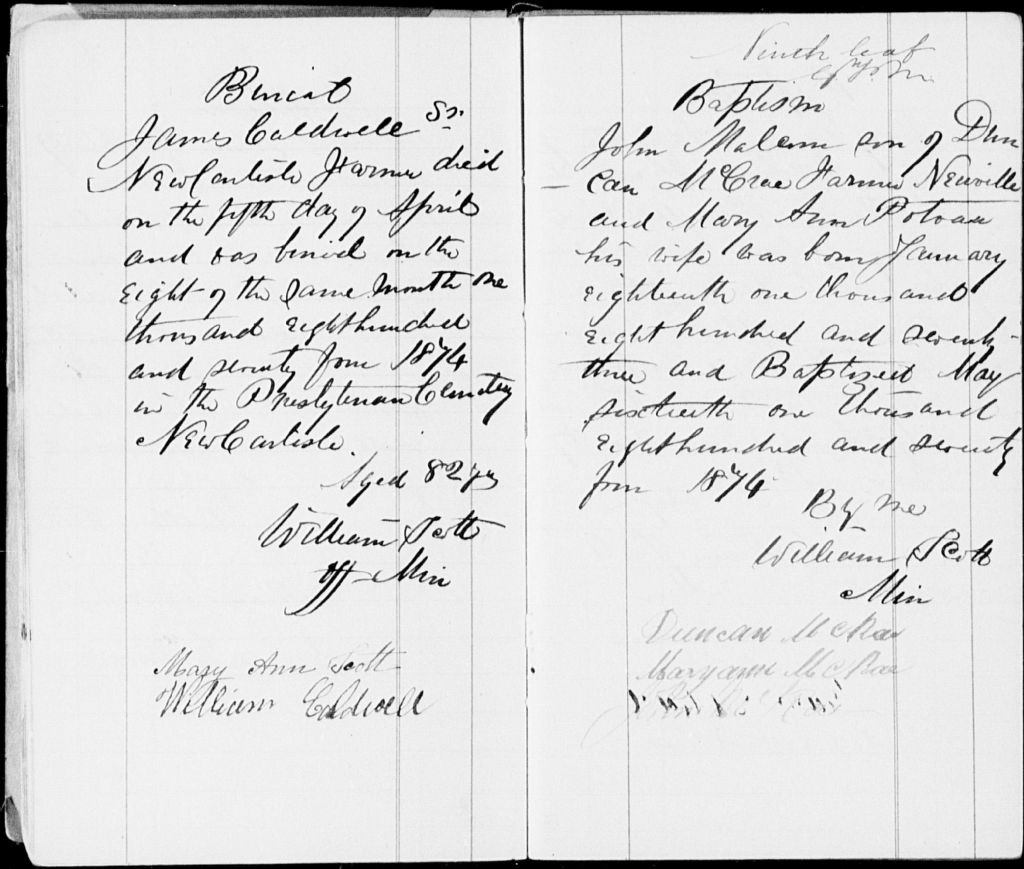 Burial
James Caldwell Sr.
New Carlisle Farmer died
on the fifth day of April
and was buried on the
Eight of the same month one
thousand eight hundred
and seventy four 1874
in the Presbyterian Cemetery
New Carlisle.
Aged 82 yrs
William Scott
Off Min
Mary Ann Scott
William Caldwell
Ninth leaf
Baptism
John Malcom son of Dun
can McCrae Farmer Newville
and Mary Ann
his wife was born January
eighteenth one thousand
eight hundred and seventy-
three and Baptised May
sixteenth one thousand
eight hundred and seventy
four 1874
By me
William Scott
Min
Duncan McRae
Maryann McRae